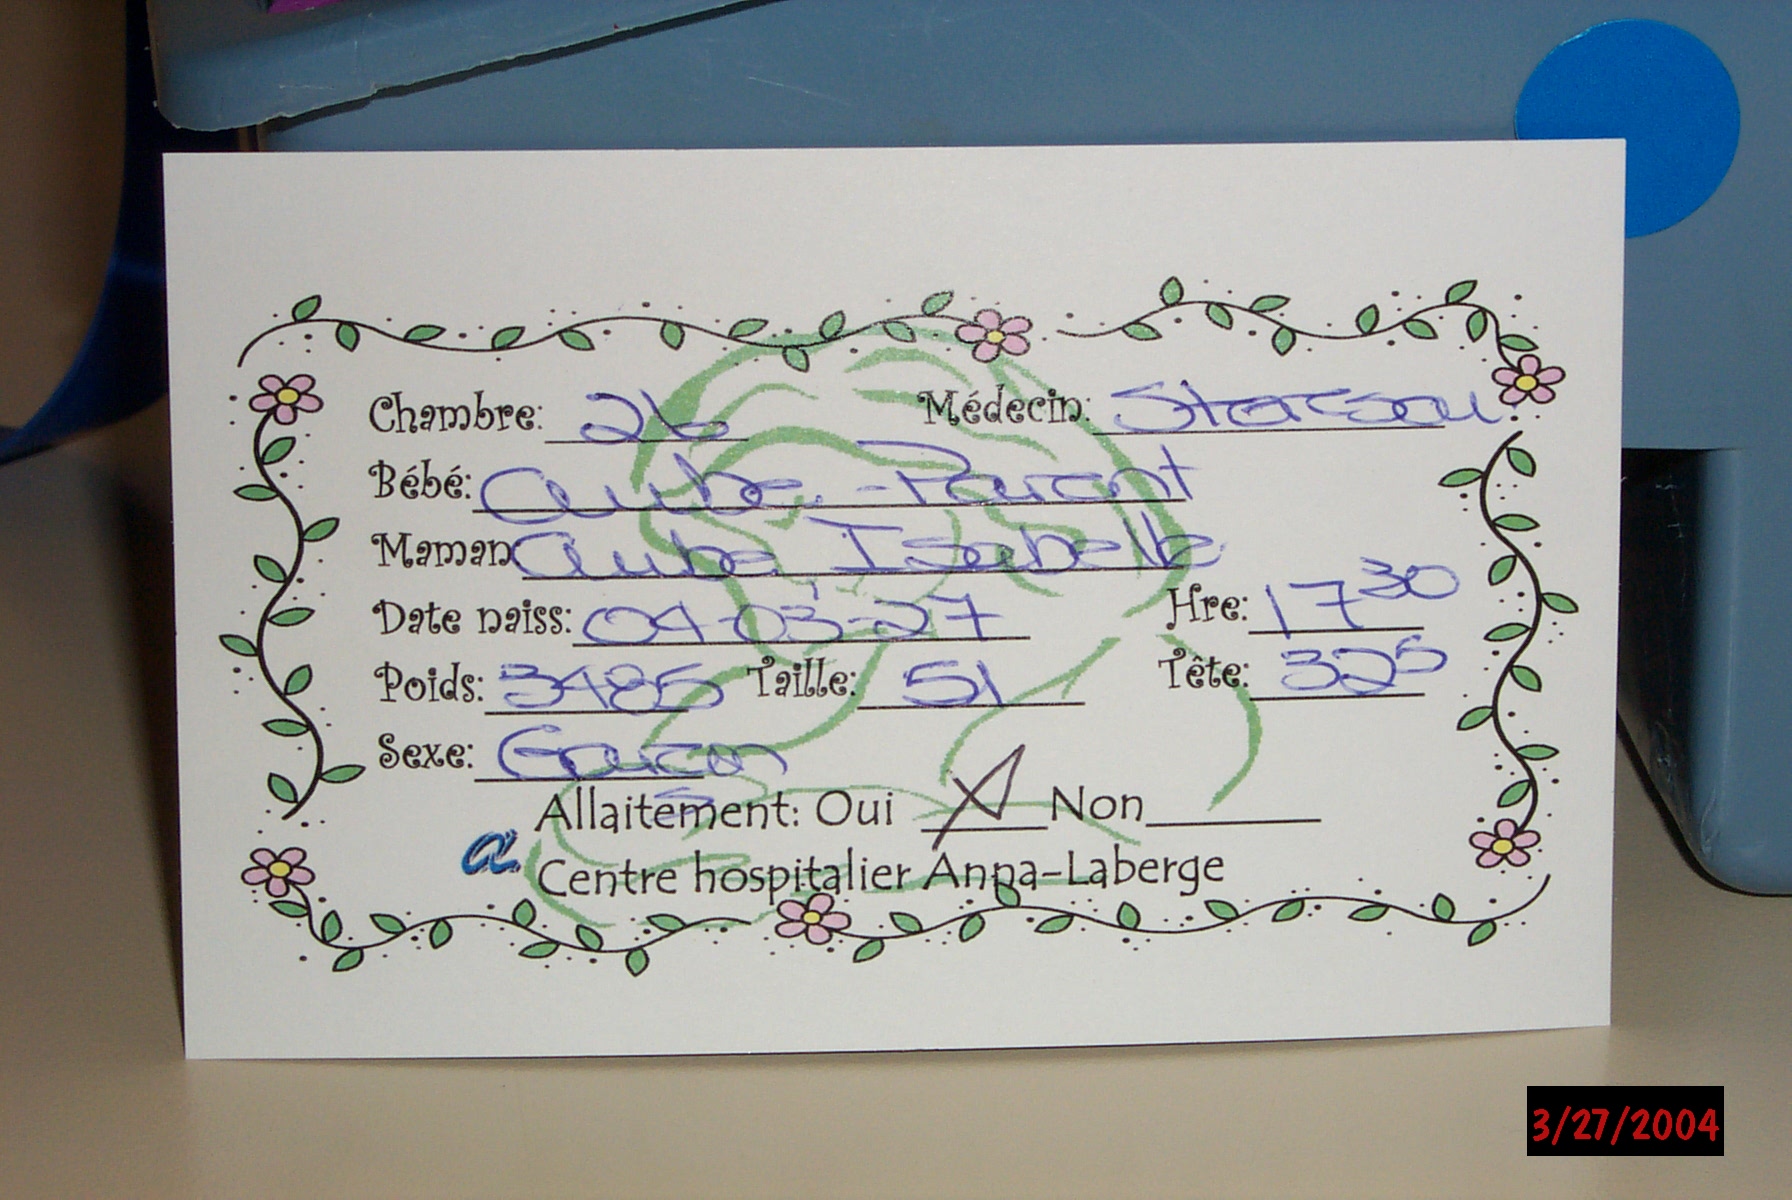 Chambre: 26 Médecin:
Bébé: Aube-Parent
Maman Aube, Isabelle
Date naiss: 04-03-27 Hre: 17 30
Poids: 3485 Taille: 51 Tête: 32 5
Sexe: Garçon
Allaitement: Oui X Non
a Centre hospitalier Anna-Laberge
3/27/2004